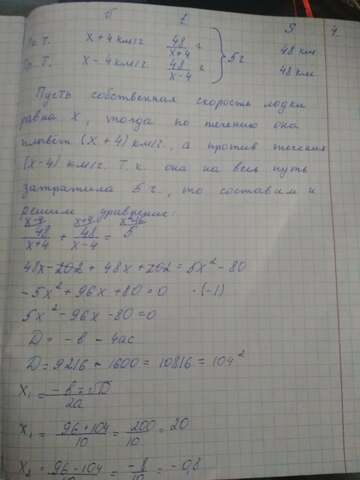 v t S
По т. x+4 км/ч 48/(x+4) ч } 5 ч 48 км
Пр. т. x-4 км/ч 48/(x-4) ч 48 км
Пусть собственная скорость лодки
равна x, тогда по течению она
плывет (x+4) км/ч, а против течения
(x-4) км/ч. Т.к. она на весь путь
затратила 5 ч, то составим и
решим уравнение:
48/(x+4) + 48/(x-4) = 5
48x-202+48x+202=5x²-80
-5x²+96x+80=0 ·(-1)
5x²-96x-80=0
D = -в -4ac
D=9216+1600=10816=104²
x₁ = (-в ± √D)/2a
x₁ = (96+104)/10 = 200/10 = 20
x₂ = (96-104)/10 = -8/10 = -0,8